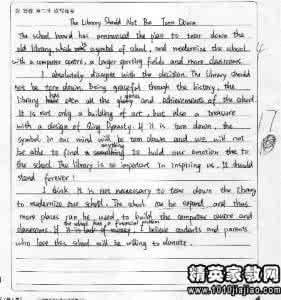 The Library Should Not Be Torn Down
The school board has announced the plan to tear down the
old library, which a symbol of school, and modernize the school
with a computer centre, a larger sporting fields and more classrooms.
I absolutely disagree with the decision. The library should
not be torn down. being graceful through the history, the
library has seen all the glories and achievements of the school.
It is not only a building of art, but also a treasure
with a design of Qing Dynasty. If it is torn down, the
symbol in our mind will be torn down and we will not
be able to find something to hold our emotion due to
the school. The library is so important in inspiring us. It should
stand forever!
I think it is not necessary to tear down the library
to modernize our school. The school can be expand, and thus
more places can be used to build the computer centre and
the school has a financial problem
classrooms. If it is lack of money, I believe students and parents
who love this school will be willing to donate.
4
17
精英家教网
www.1010jiajiao.com